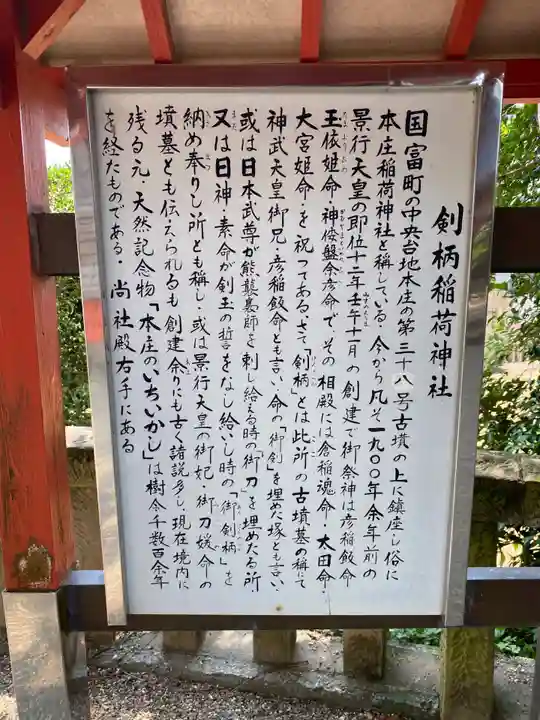 剣柄稲荷神社
国富町の中央台地本庄の第三十八号古墳の上に鎮座し俗に
本庄稲荷神社と称している。今から凡そ一九〇〇年余年前の
景行天皇の即位十二年壬午十一月の創建で御祭神は彦稲飯命
玉依姫命・神倭盤余彦命で、その相殿には倉稲魂命・太田命・
大宮姫命・を祝ってある。さて「剣柄」とは此所の古墳墓の称にて
神武天皇御兄・彦稲飯命とも言い、命の「御剣」を埋めた塚とも言い、
或は日本武尊が熊襲梟師を刺し給える時の「御刀」を埋めたる所
又は日神・素命が剣玉の誓をなし給いし時の「御剣柄」を
納め奉りし所とも称し・或は景行天皇の御妃・御刀媛命の
墳墓とも伝えられるも創建余りにも古く諸説多し、現在境内に
残る元・天然記念物「本庄のいちいかし」は樹令千数百余年
を経たものである。尚社殿右手にある